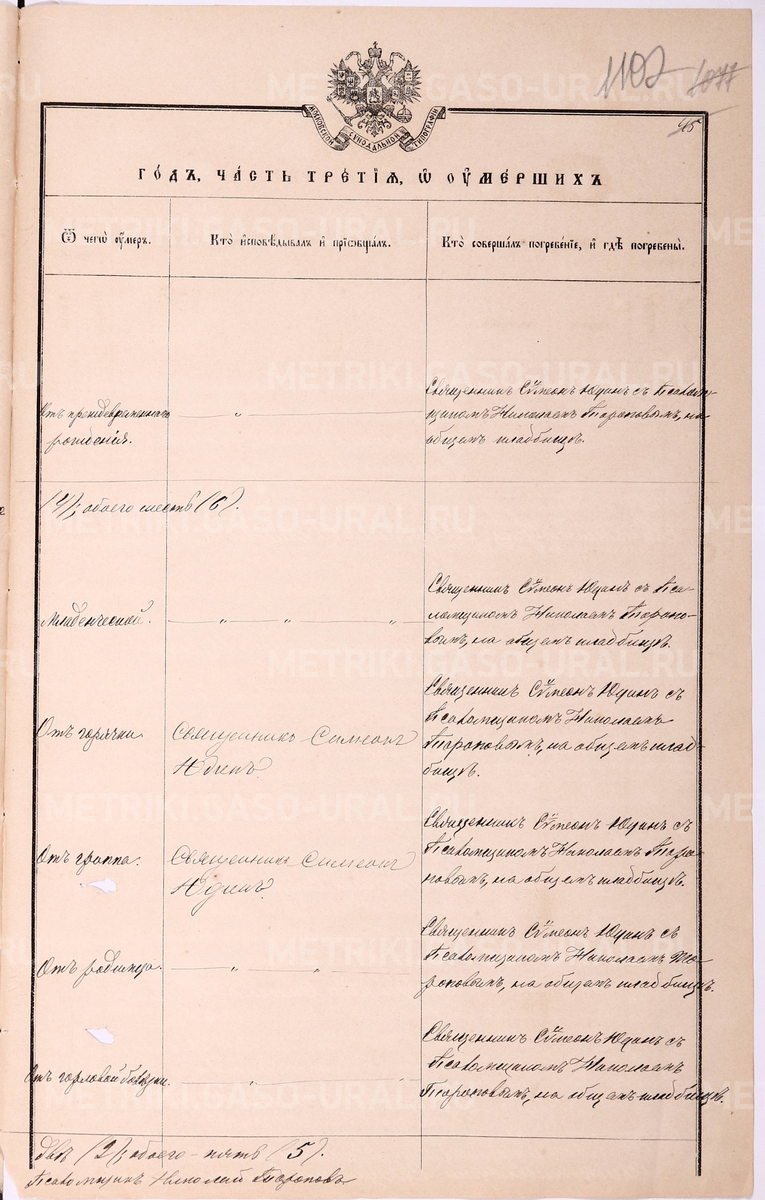 1102 1077
МОСКОВСКОЙ СѴНОДАЛЬНОЙ ТИПОГРАФІИ
45
ГОДЪ, ЧАСТЬ ТРЕТІѦ, Ѡ ОУМЕРШИХЪ
Ѿ чегѡ оумеръ.
Кто исповѣдывалъ и пріобщалъ.
Кто совершалъ погребеніе, и гдѣ погребены.
Отъ преждевременнаго
рожденія.
„
Священникъ Сѵмеонъ Юдинъ съ Псалом-
щикомъ Николаемъ Тороповымъ, на
общемъ кладбищѣ.
(4); обоего шесть (6).
Младенческой.
„ „ „
Священникъ Сѵмеонъ Юдинъ съ Пса-
ломщикомъ Николаемъ Торопо-
вымъ, на общемъ кладбищѣ.
Отъ горячки
Священникъ Симеонъ
Юдинъ
Священникъ Сѵмеонъ Юдинъ съ
Псаломщикомъ Николаемъ
Тороповымъ, на общемъ клад-
бищѣ.
Отъ гриппа.
Священникъ Симеонъ
Юдинъ
Священникъ Сѵмеонъ Юдинъ съ
Псаломщикомъ Николаемъ Торо-
повымъ, на общемъ кладбищѣ.
Отъ родимца.
„ „
Священникъ Сѵмеонъ Юдинъ съ
Псаломщикомъ Николаемъ То-
роповымъ, на общемъ кладбищѣ.
Отъ горловой болѣзни.
„ „
Священникъ Сѵмеонъ Юдинъ съ
Псаломщикомъ Николаемъ
Тороповымъ, на общемъ кладбищѣ.
два (2); обоего – пять (5).
Псаломщикъ Николай Тороповъ
METRIKI.GASO-URAL.RU